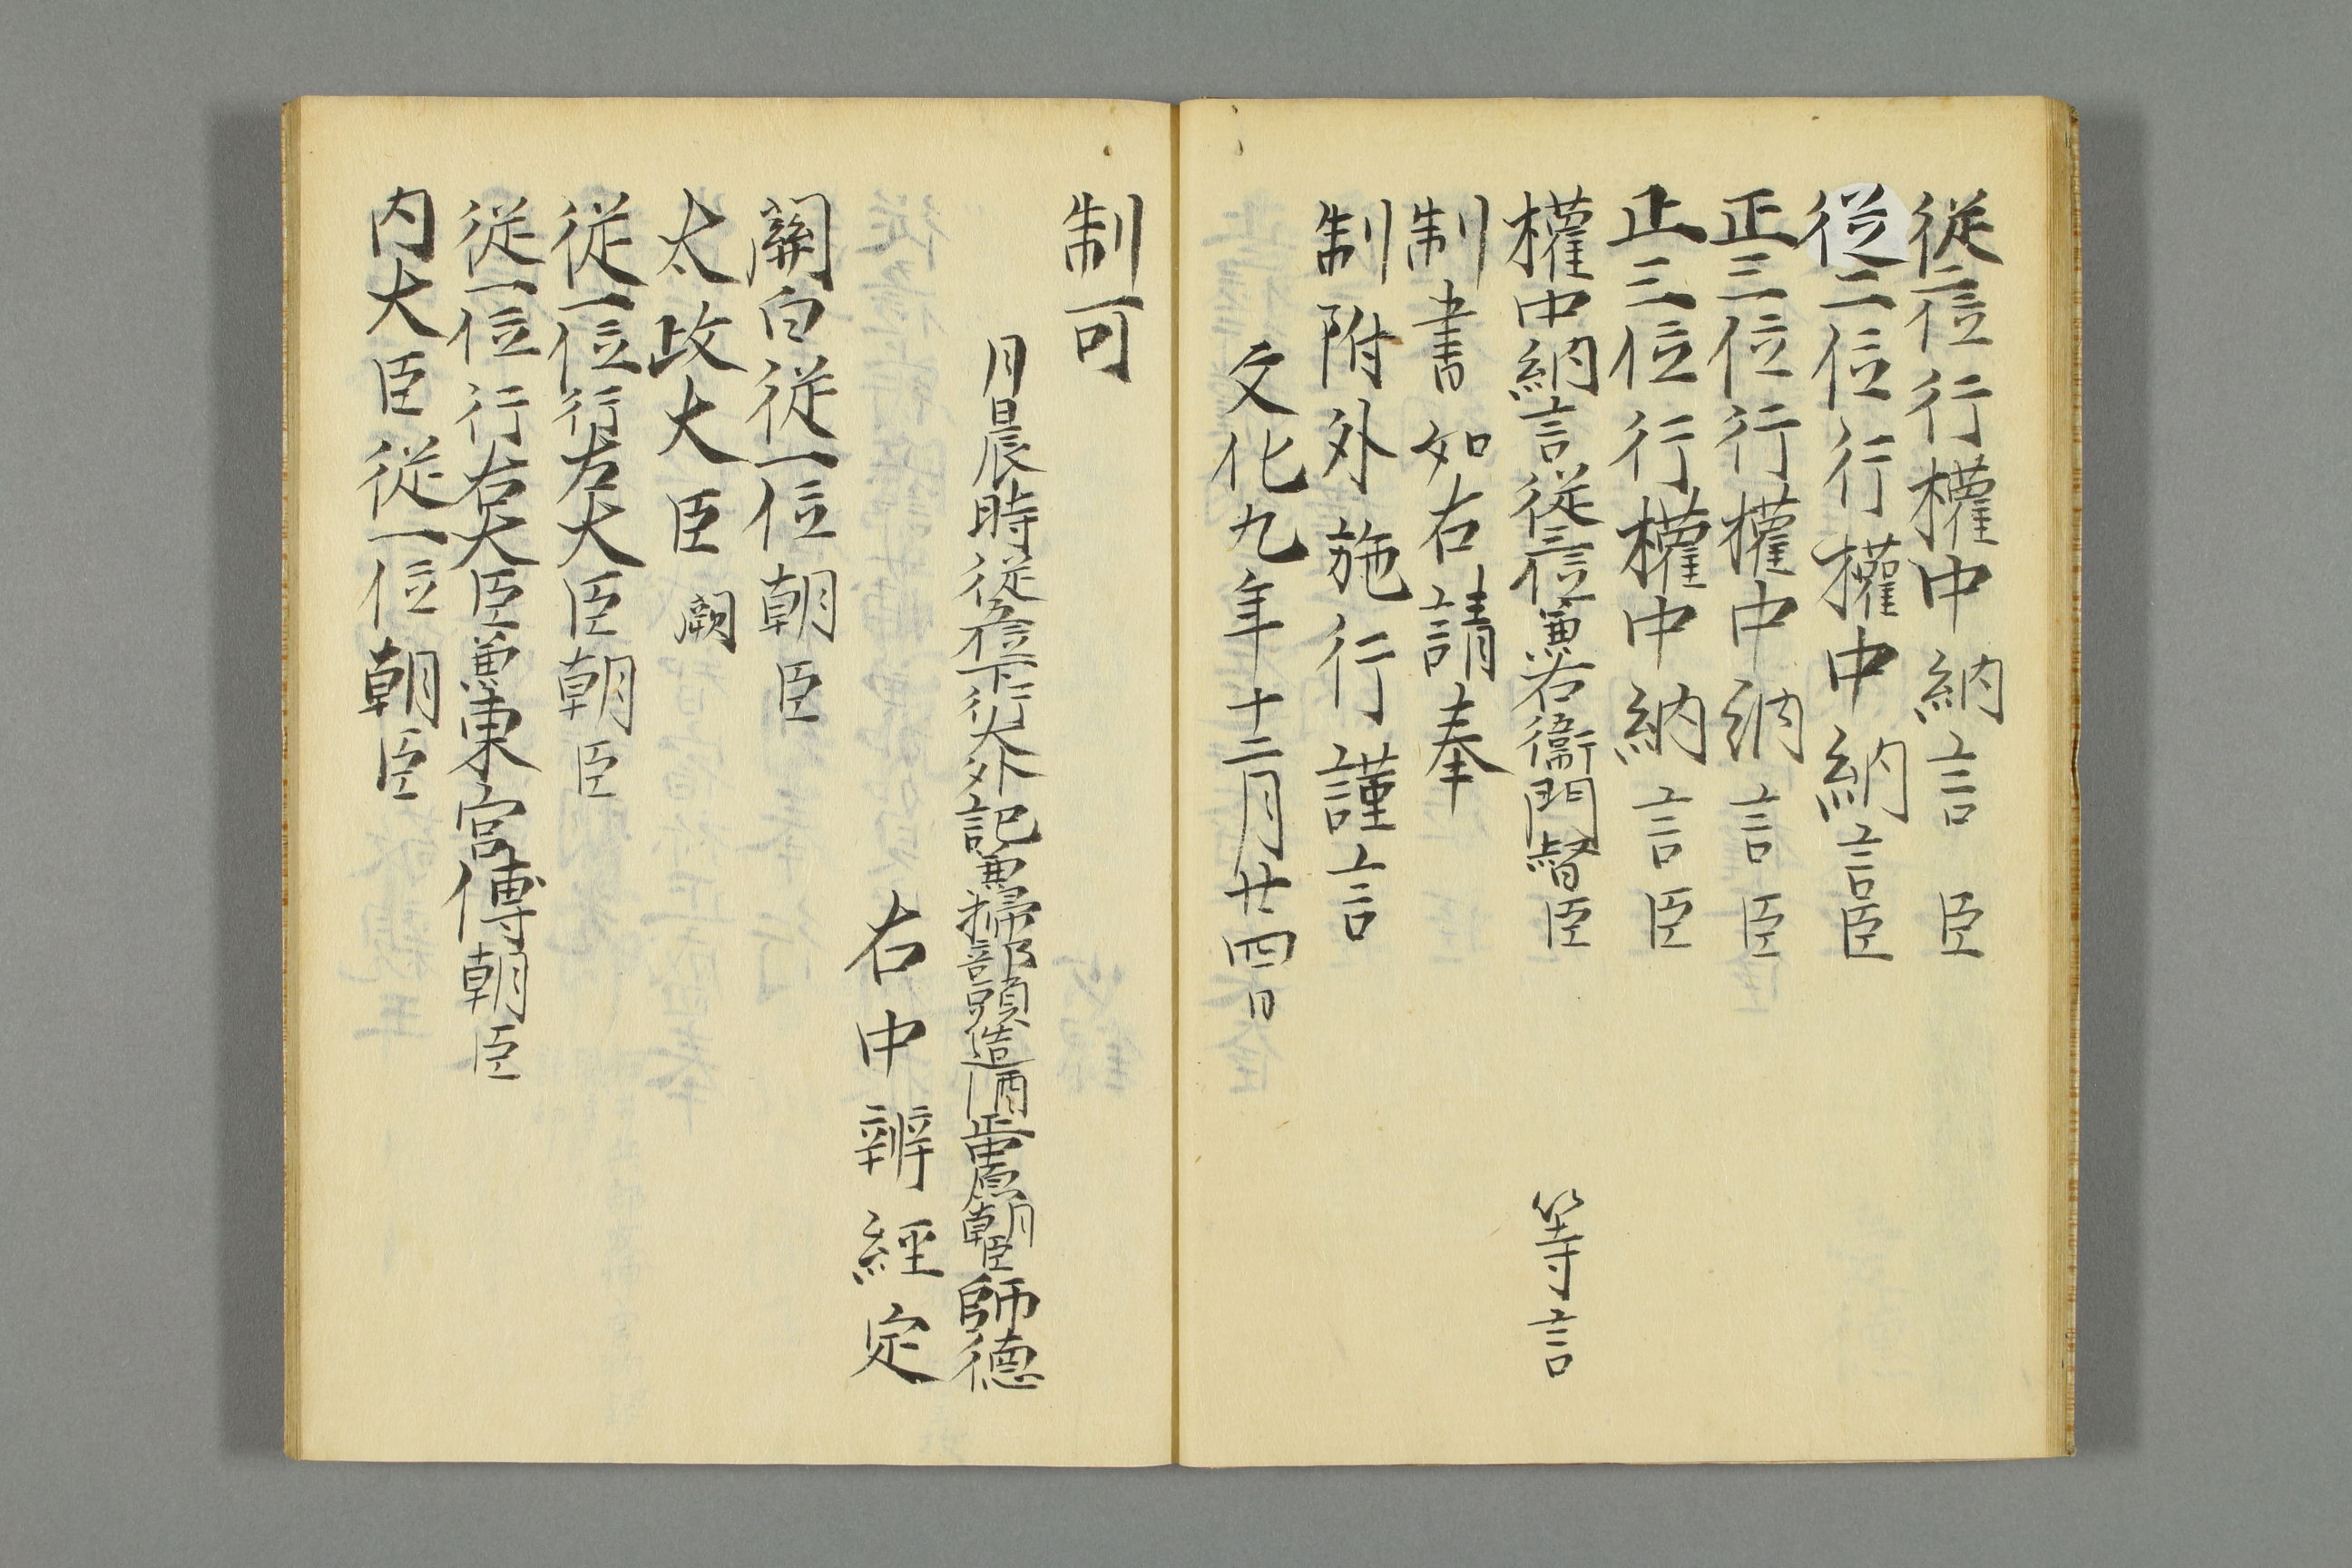 從二位行權中納言 臣
從二位行權中納言臣
正三位行權中納言臣
正三位行權中納言臣
權中納言從三位兼右衞門督臣 等言
制書如右請奉
制附外施行謹言
文化九年十二月廿四日
制可
月日辰時從五位下行大外記兼掃部頭造酒正中原朝臣師德
右中辨經定
關白從一位朝臣
太政大臣闕
從一位行左大臣朝臣
從一位行右大臣兼東宮傅朝臣
内大臣從一位朝臣